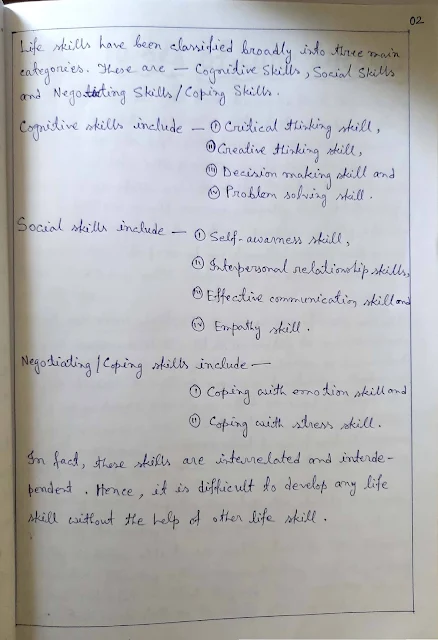 02
Life skills have been classified broadly into three main
categories. These are — Cognitive Skills, Social Skills
and Negotiating Skills/Coping Skills.
Cognitive skills include — (i) Critical thinking skill,
(ii) Creative thinking skill,
(iii) Decision making skill and
(iv) Problem solving skill.
Social skills include — (i) Self-awarness skill,
(ii) Interpersonal relationship skills,
(iii) Effective communication skill and
(iv) Empathy skill.
Negotiating/Coping skills include —
(i) Coping with emotion skill and
(ii) Coping with stress skill.
In fact, these skills are interrelated and interde-
pendent. Hence, it is difficult to develop any life
skill without the help of other life skill.